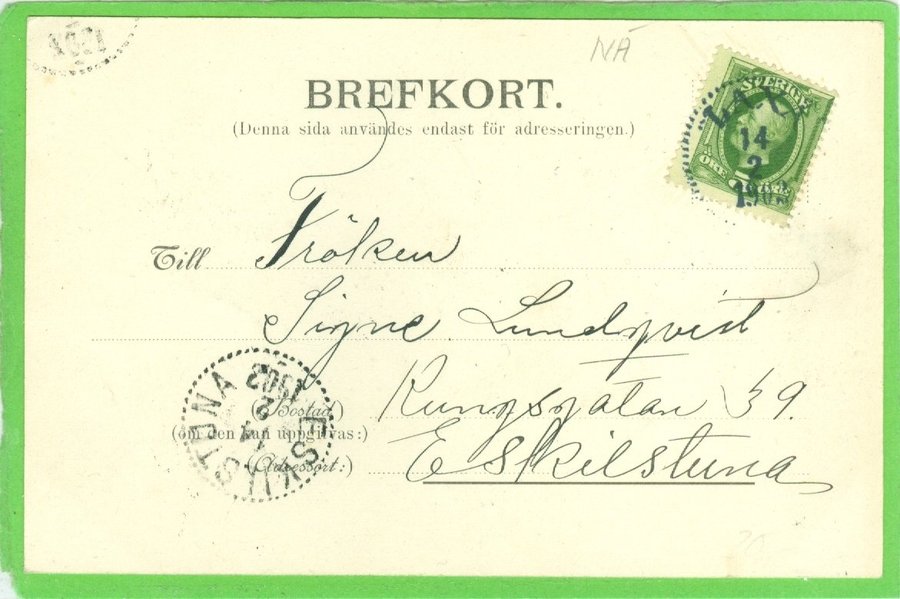 NÄ
BREFKORT.
(Denna sida användes endast för adresseringen.)
SVERIGE
5 ÖRE
LAXÅ
14
2
1903
Till Fröken
Signe Lundqvist
(Bostad) Kungsgatan 39.
(om den kan uppgifvas:)
(Adressort:) Eskilstuna
ESKILSTUNA
2